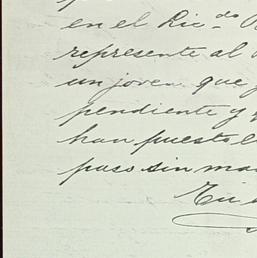 en el Lic.do
represente al
un joven que
pendiente y
han puesto
paso sin